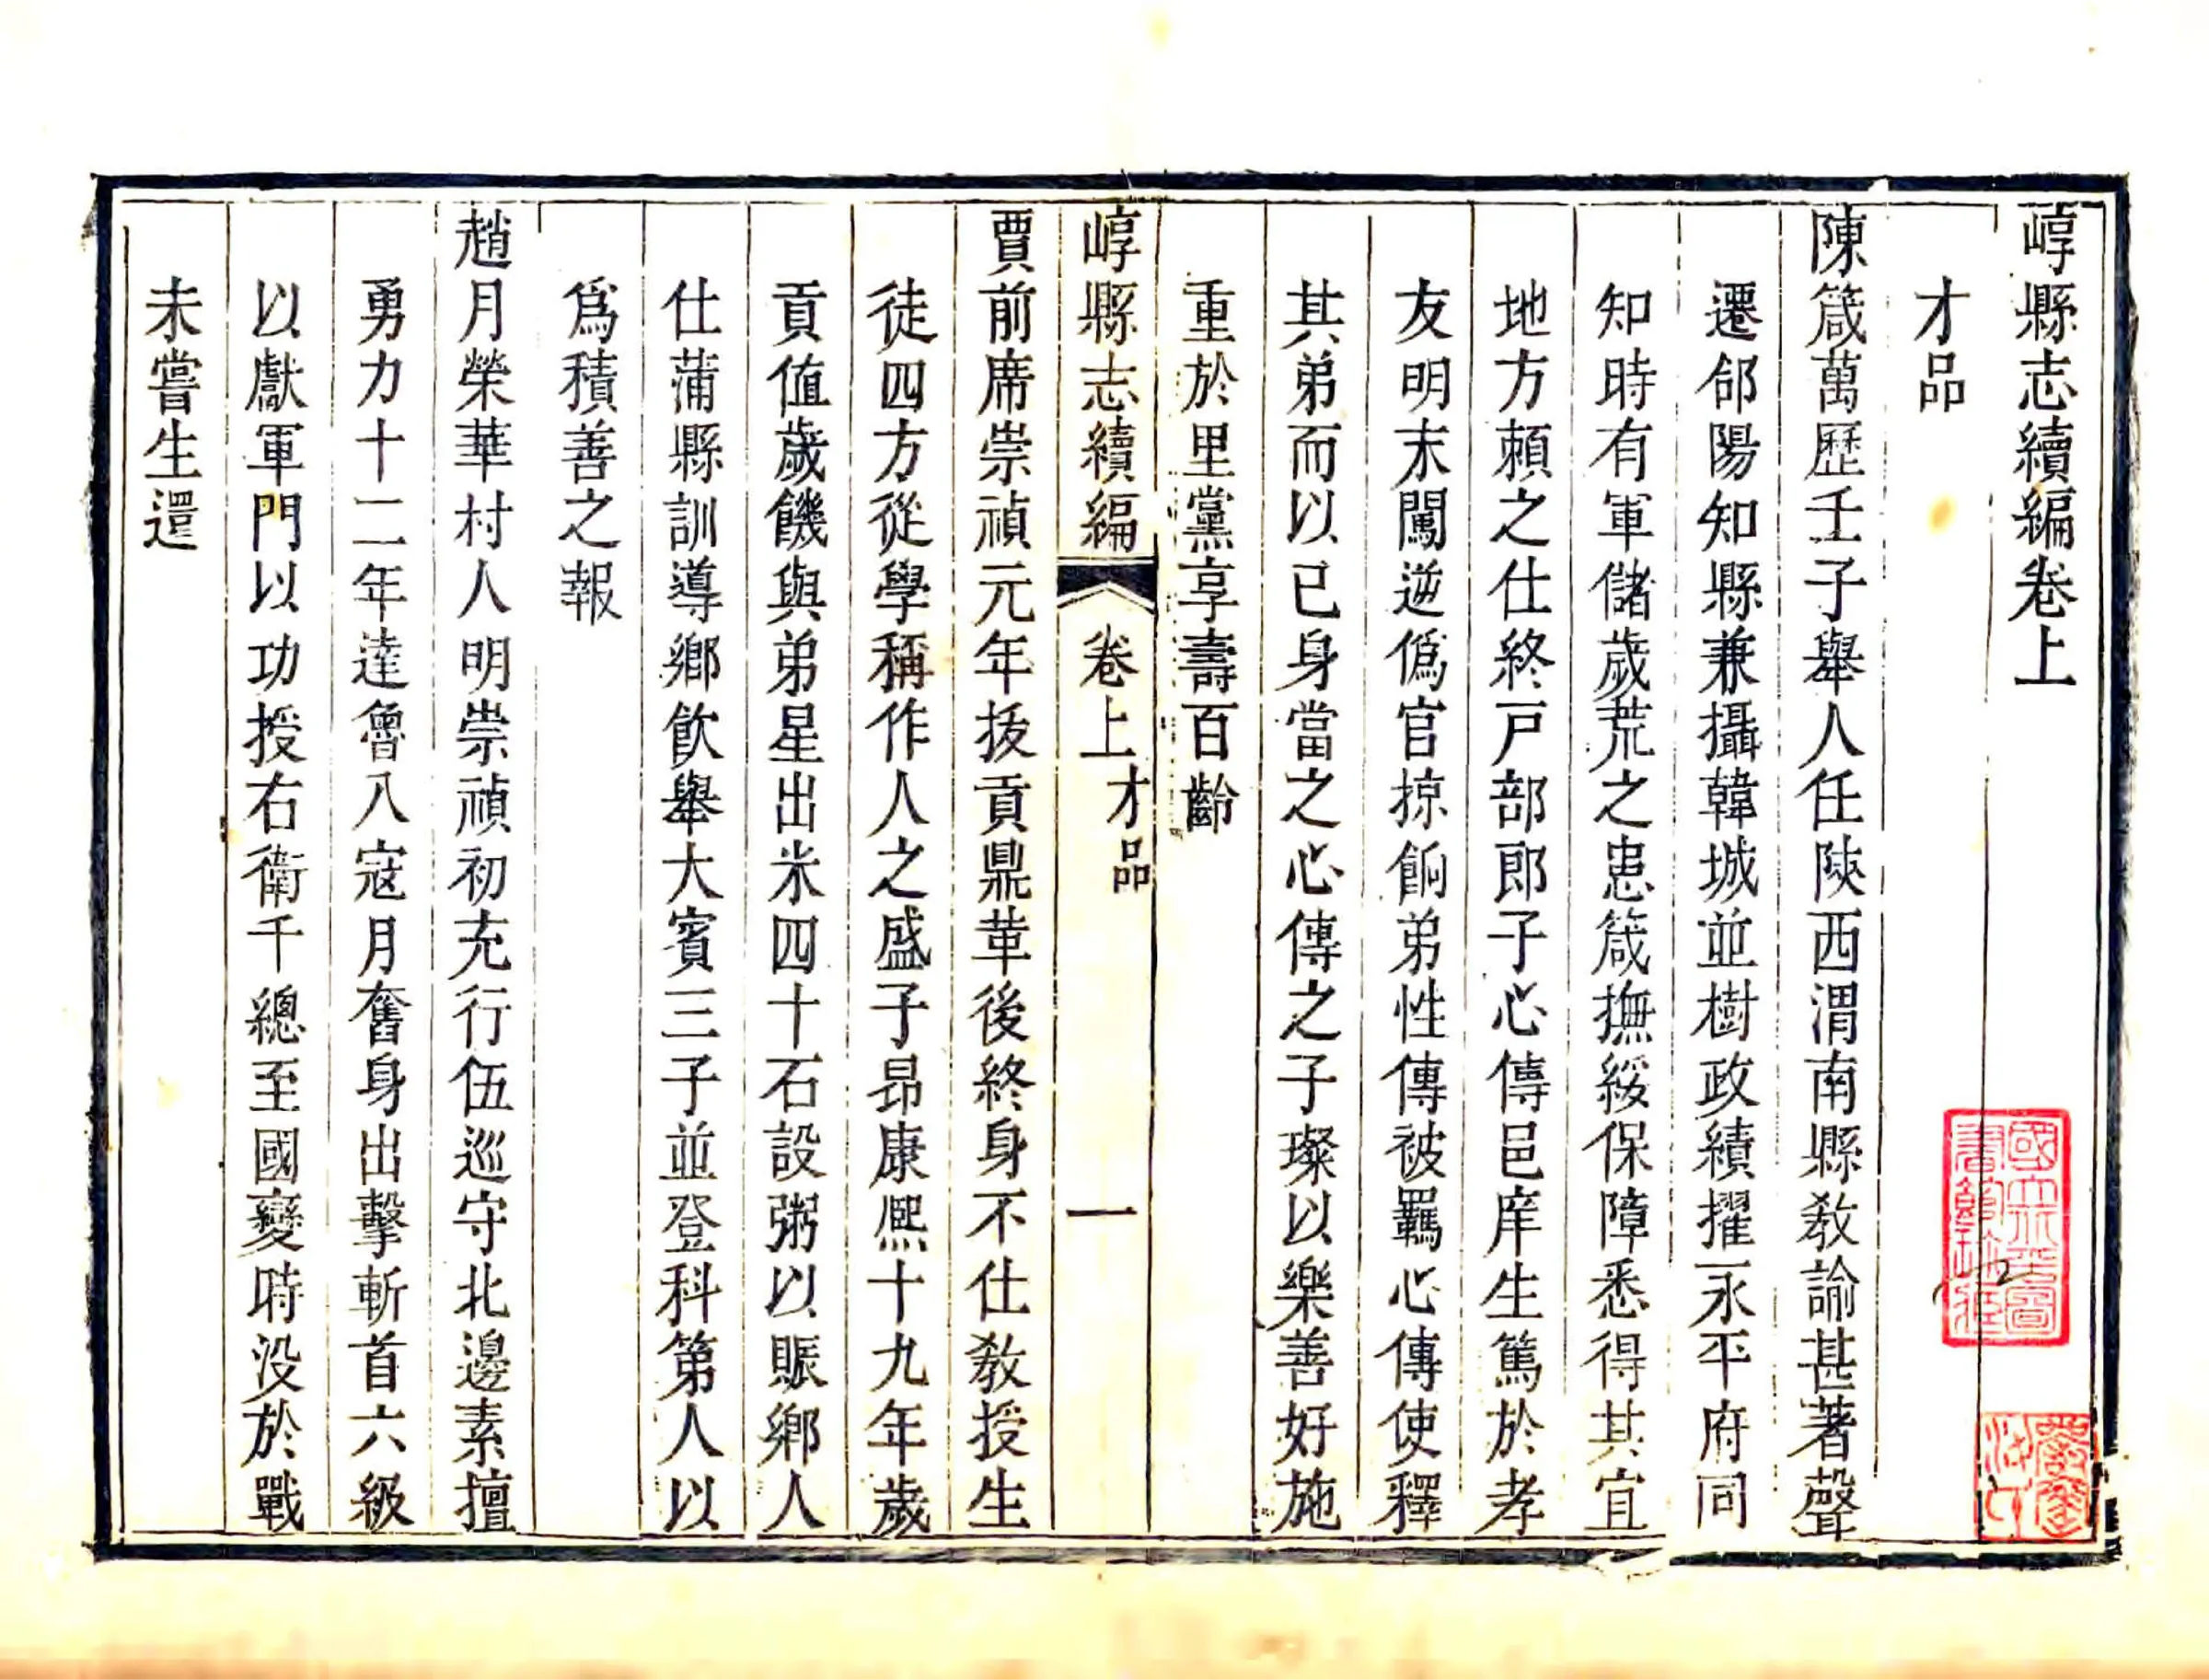 崞縣志續編卷上
才品
陳箴萬歷壬子舉人任陝西渭南縣教諭甚著聲
遷郃陽知縣兼攝韓城並樹政績擢永平府同
知時有軍儲歲荒之患箴撫綏保障悉得其宜
地方賴之仕終戸部郎子心傳邑庠生篤於孝
友明末闖逆僞官掠餉弟性傳被羈心傳使釋
其弟而以已身當之心傳之子璨以樂善好施
重於里黨享壽百齡
崞縣志續編
卷上
才品
一
賈前席崇禎元年拔貢鼎革後終身不仕教授生
徒四方從學稱作人之盛子昂康熙十九年歲
貢值歲饑與弟星出米四十石設粥以賑鄉人
仕蒲縣訓導鄉飲舉大賓三子並登科第人以
爲積善之報
趙月榮華村人明崇禎初充行伍巡守北邊素擅
勇力十二年達魯八寇月奮身出擊斬首六級
以獻軍門以功授右衛千總至國變時没於戰
未嘗生還
國立北平圖書館珍藏